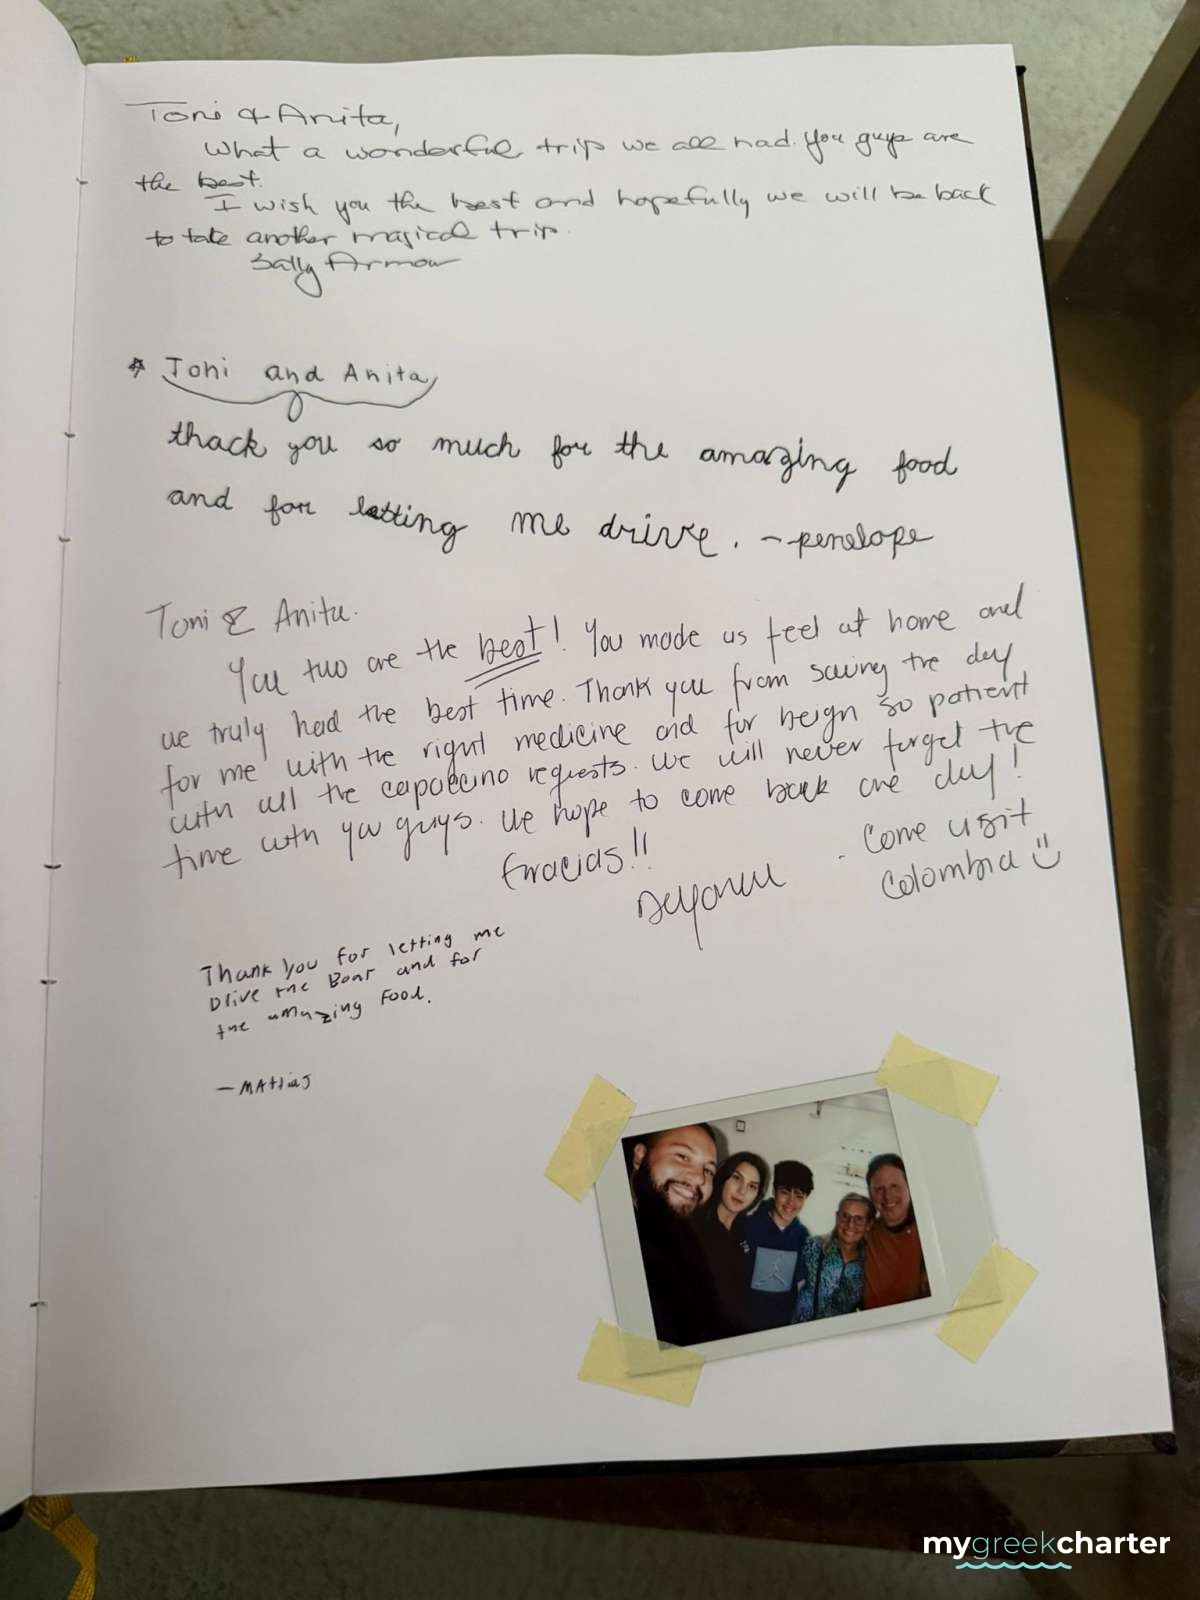 Toni & Anita,
What a wonderful trip we all had. You guys are
the best.
I wish you the best and hopefully we will be back
to take another magical trip.
Sally Armour
Toni and Anita,
thack you so much for the amazing food
and for letting me drive. - penelope
Toni & Anita.
You two are the best! You made us feel at home and
we truly had the best time. Thank you from saving the day
for me with the right medicine and for beign so patient
with all the capuccino requests. We will never forget the
time with you guys. We hope to come back one day!
Gracias!!
- Come visit
Colombia
Thank you for letting me
Drive the Boat and for
the amazing Food.
- Mattias
mygreekcharter